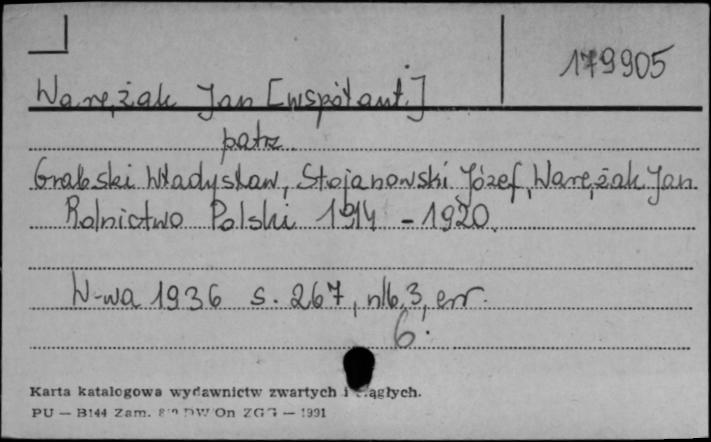 179905
Warężak Jan [współaut.]
patrz
Grabski Władysław, Stojanowski Józef, Warężak Jan
Rolnictwo Polski 1914 - 1920.
W-wa 1936 s. 267, nlb. 3, err.
6.
Karta katalogowa wydawnictw zwartych i ciągłych.
PU — B144 Zam. DW/On ZGG — 1991